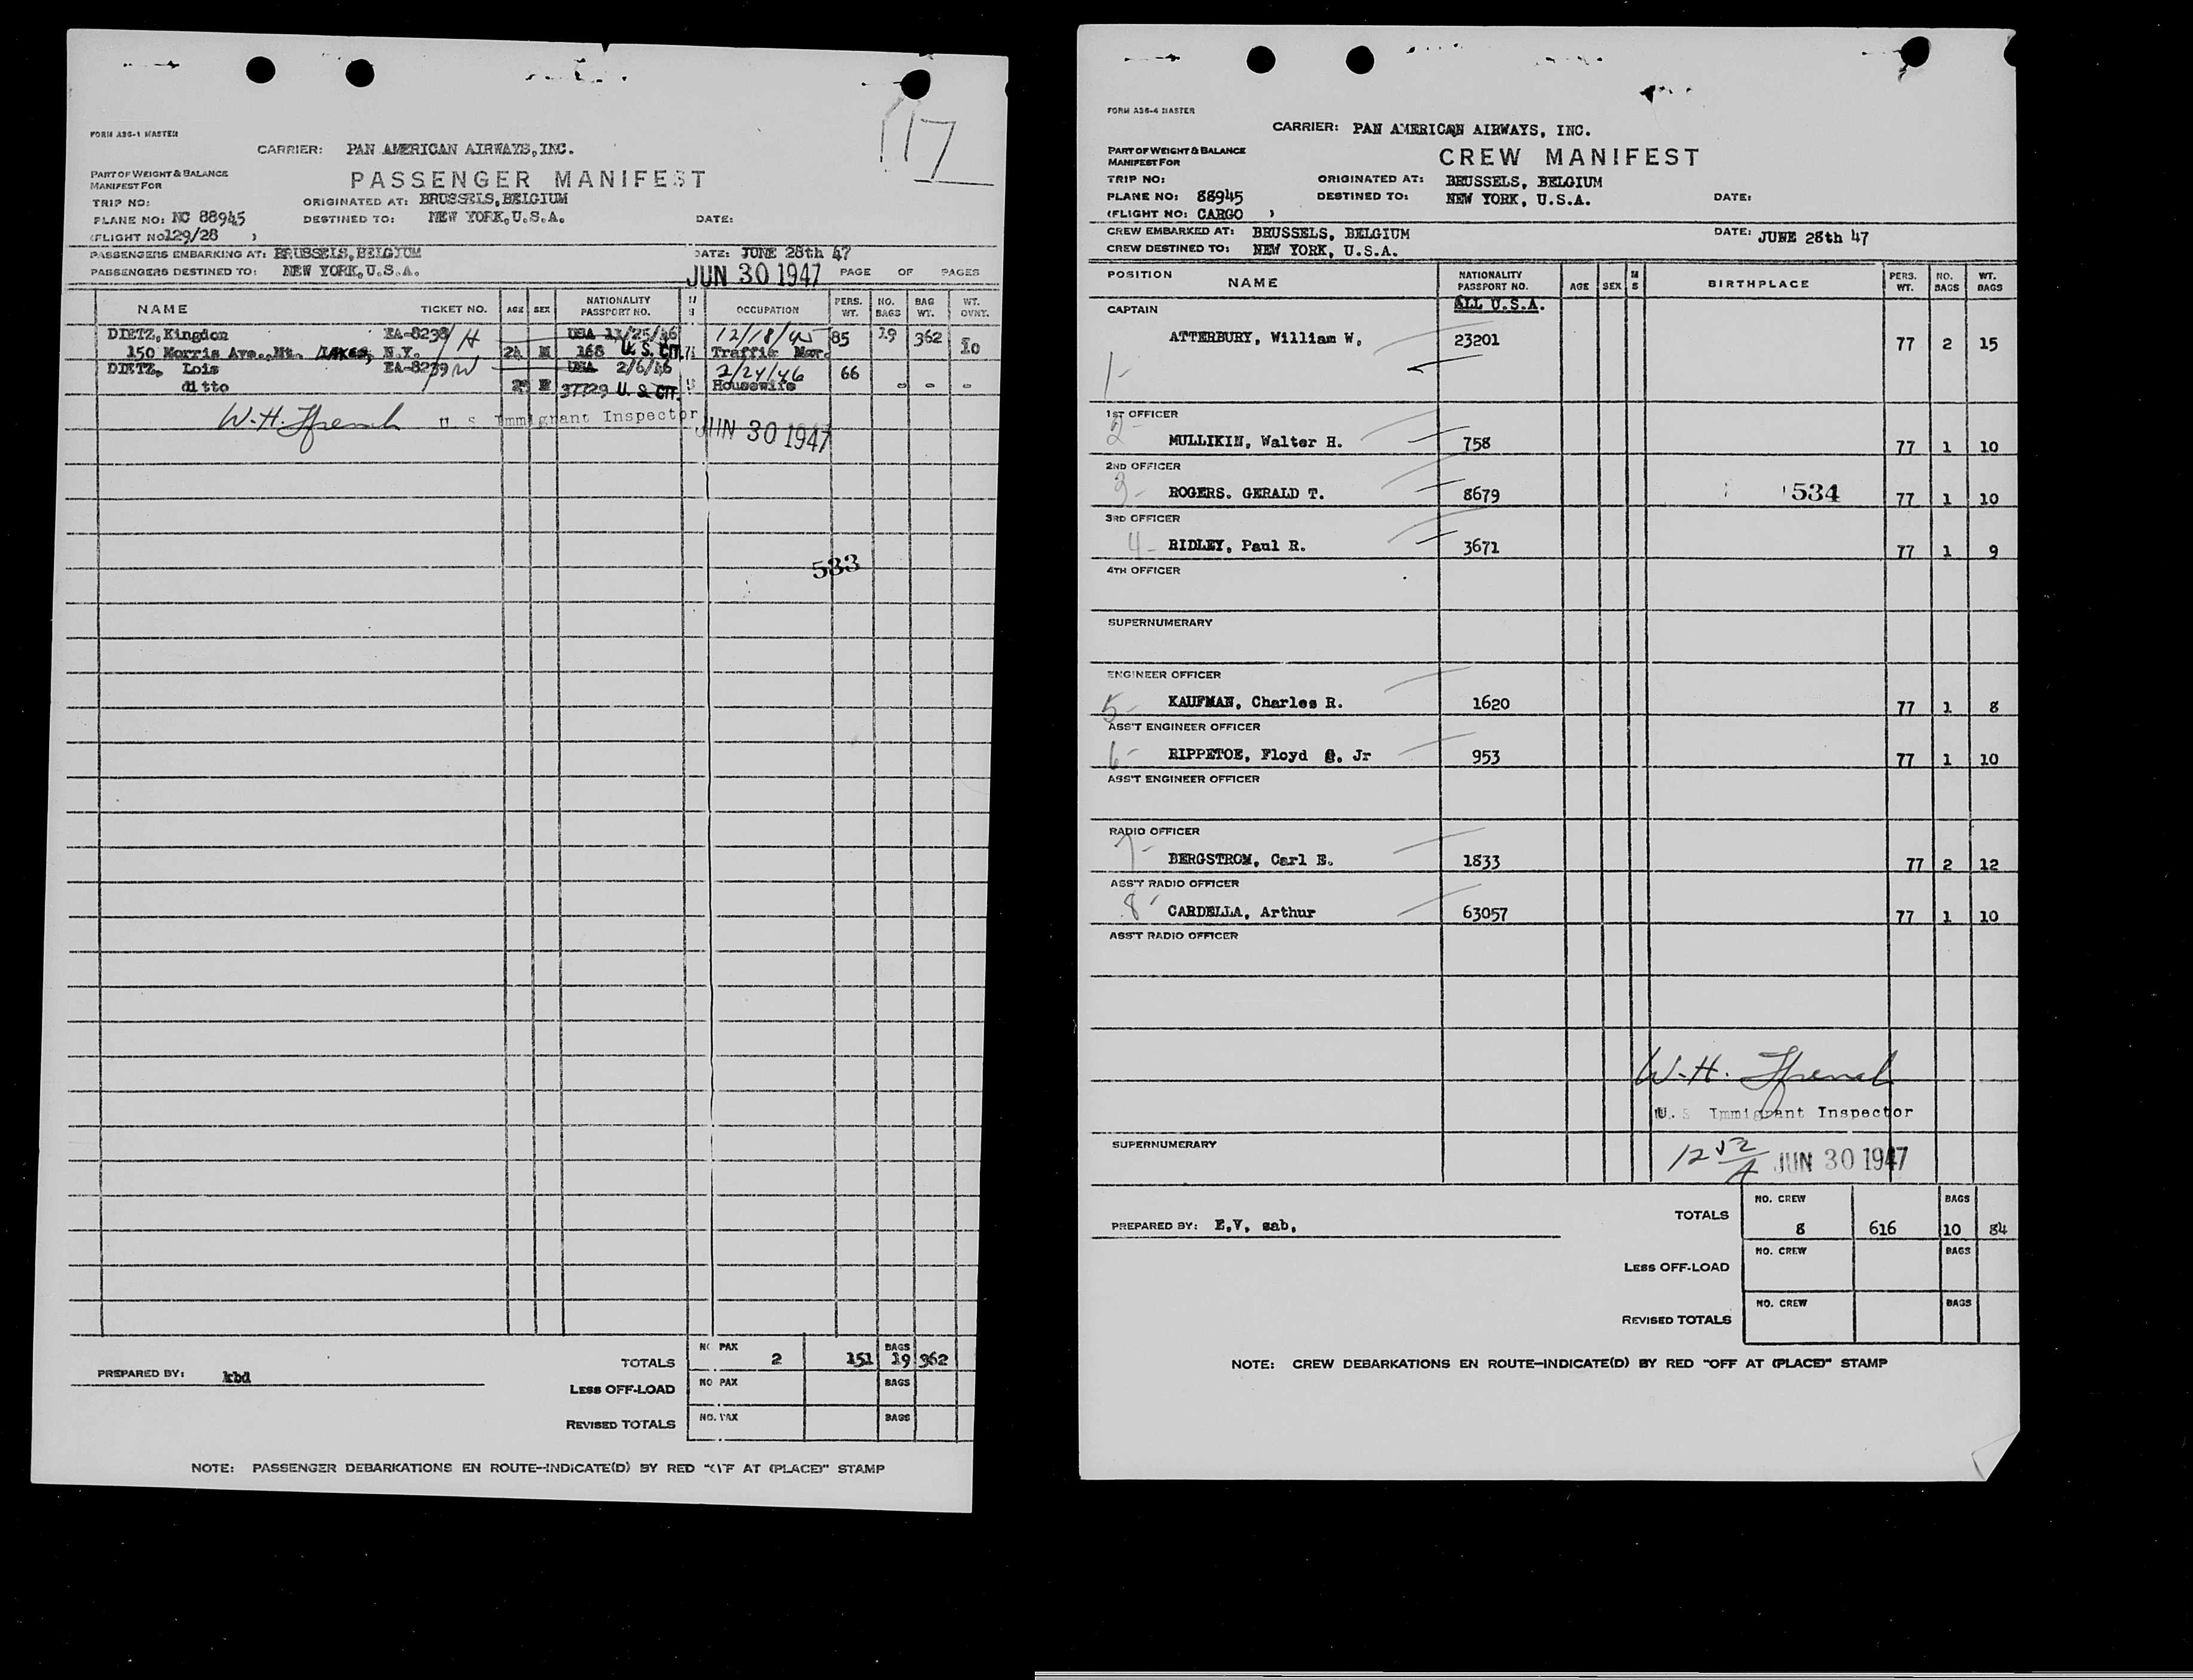 117
FORM A36-1 MASTER
CARRIER: PAN AMERICAN AIRWAYS, INC.
PART OF WEIGHT & BALANCE
MANIFEST FOR
PASSENGER MANIFEST
TRIP NO: ORIGINATED AT: BRUSSELS, BELGIUM
PLANE NO: NC 88945 DESTINED TO: NEW YORK, U.S.A. DATE:
(FLIGHT NO 129/28 )
PASSENGERS EMBARKING AT: BRUSSELS, BELGIUM DATE: JUNE 28th 47
PASSENGERS DESTINED TO: NEW YORK, U.S.A. JUN 30 1947 PAGE OF PAGES
NAME TICKET NO. AGE SEX NATIONALITY PASSPORT NO. M S OCCUPATION PERS. WT. NO. BAGS BAG WT. WT. OVWT.
DIETZ, Kingdon EA-8238/H USA 11/25/46 12/18/45 85 19 362
150 Morris Ave., Mt. LAKES, N.Y. M 168 U.S. CIT. Traffic Mgr. 10
DIETZ, Lois EA-8239/W USA 2/6/46 2/24/46 66
ditto 37729 U.S. CIT. Housewife - - -
W.H. Ffrench U. S. Immigrant Inspector JUN 30 1947
533
TOTALS NO PAX 2 151 BAGS 19 362
PREPARED BY: kbd
LESS OFF-LOAD NO PAX BAGS
REVISED TOTALS NO. PAX BAGS
NOTE: PASSENGER DEBARKATIONS EN ROUTE-INDICATE(D) BY RED "OFF AT (PLACE)" STAMP
FORM A36-4 MASTER
CARRIER: PAN AMERICAN AIRWAYS, INC.
PART OF WEIGHT & BALANCE
MANIFEST FOR
CREW MANIFEST
TRIP NO: ORIGINATED AT: BRUSSELS, BELGIUM
PLANE NO: 88945 DESTINED TO: NEW YORK, U.S.A. DATE:
(FLIGHT NO: CARGO )
CREW EMBARKED AT: BRUSSELS, BELGIUM DATE: JUNE 28th 47
CREW DESTINED TO: NEW YORK, U.S.A.
POSITION NAME NATIONALITY PASSPORT NO. AGE SEX M S BIRTHPLACE PERS. WT. NO. BAGS WT. BAGS
CAPTAIN ALL U.S.A.
ATTERBURY, William W. 23201 77 2 15
1-
1ST OFFICER
2- MULLIKIN, Walter H. 758 77 1 10
2ND OFFICER
3- ROGERS. GERALD T. 8679 534 77 1 10
3RD OFFICER
4- RIDLEY, Paul R. 3671 77 1 9
4TH OFFICER
SUPERNUMERARY
ENGINEER OFFICER
5- KAUFMAN, Charles R. 1620 77 1 8
ASS'T ENGINEER OFFICER
6- RIPPETOE, Floyd G. Jr 953 77 1 10
ASS'T ENGINEER OFFICER
RADIO OFFICER
7- BERGSTROM, Carl E. 1833 77 2 12
ASS'T RADIO OFFICER
8- CARDELLA, Arthur 63057 77 1 10
ASS'T RADIO OFFICER
W.H. Ffrench
U. S Immigrant Inspector
SUPERNUMERARY
12 52/A JUN 30 1947
TOTALS NO. CREW 8 616 BAGS 10 84
PREPARED BY: E.V. sab.
LESS OFF-LOAD NO. CREW BAGS
REVISED TOTALS NO. CREW BAGS
NOTE: CREW DEBARKATIONS EN ROUTE-INDICATE(D) BY RED "OFF AT (PLACE)" STAMP